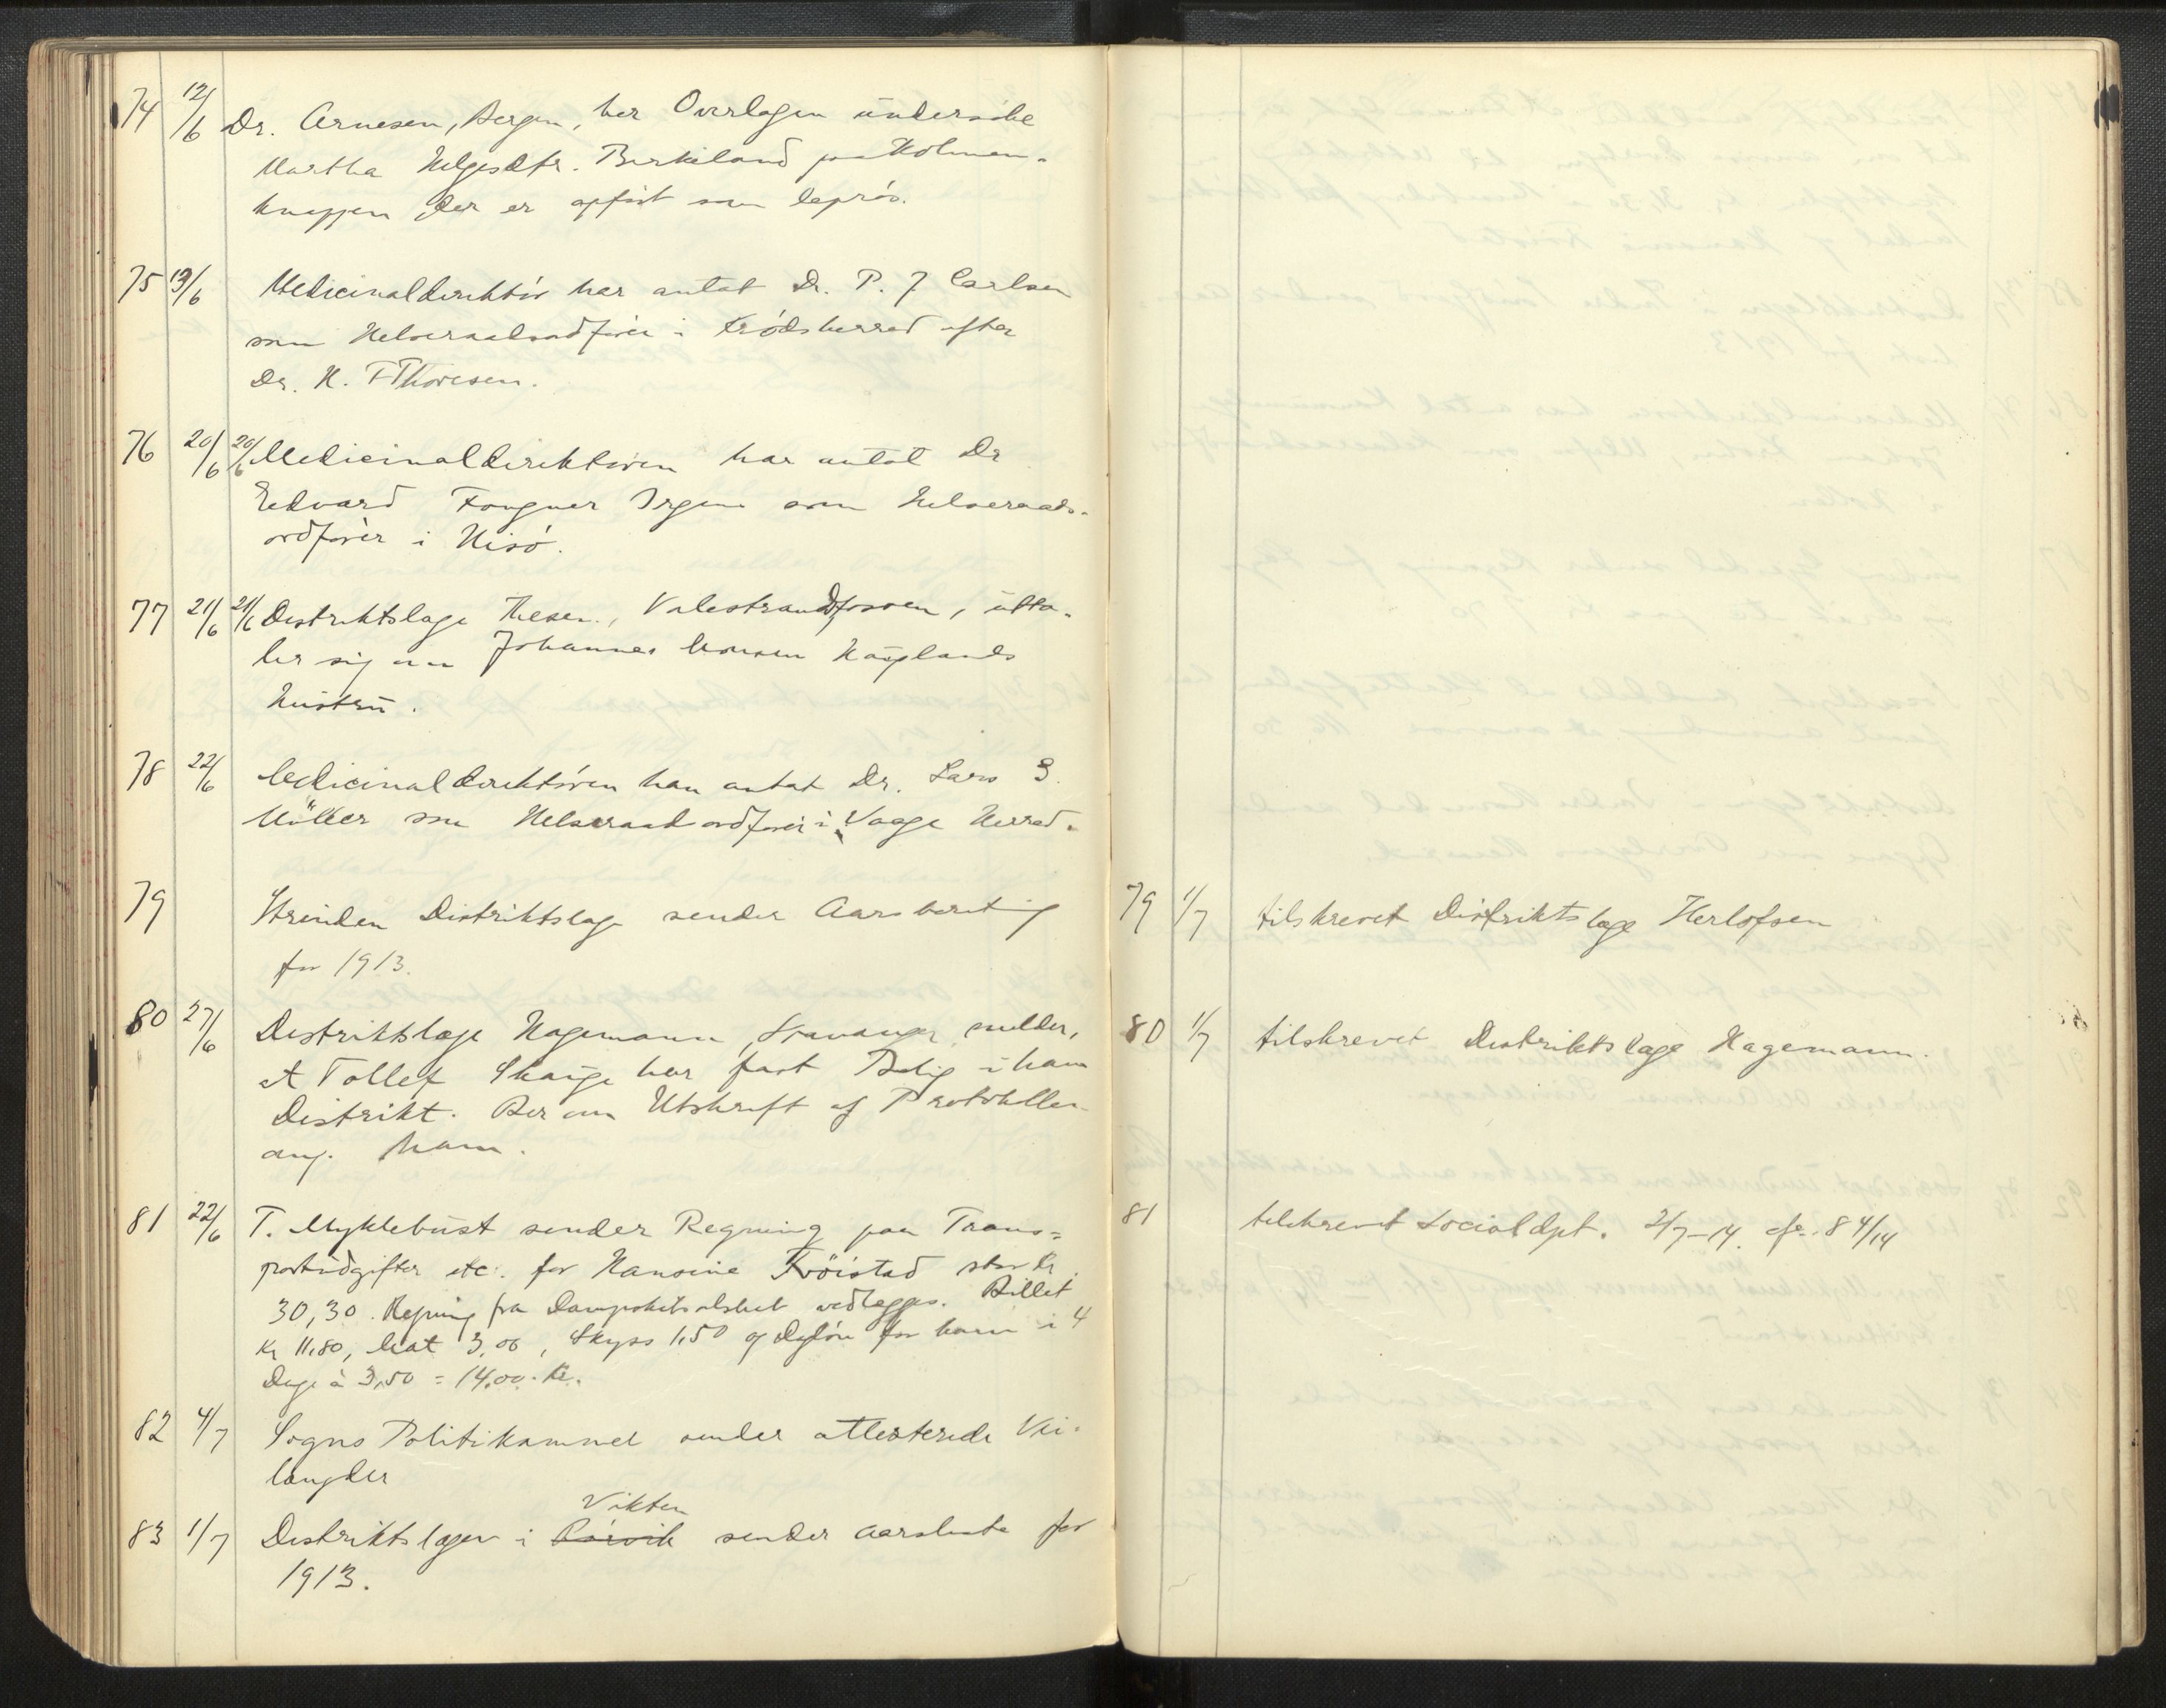 74 12/6 Dr. Arnesen, Bergen, ber Overlægen undersøke
Martha Helgesdtr. Birkeland paa Holmen-
knappen der er opført som leprøs.
75 19/6 Medicinaldirektør har antat Dr. P. J. Carlsen
som Helseraadsordfører i Krødsherred efter
Dr. H. F Thoresen.
76 20/6 20/6 Medicinaldirektøren har antat Dr
Edvard Fougner Irgens som Helseraads-
ordfører i Hisø.
77 21/6 21/6 Distriktslæge Thesen, Valestrandfossen, utta-
ler sig om Johannes Monsen Hauglands
Hustru.
78 22/6 Medicinaldirektøren har antat Dr. Lars S.
Möller som Helseraadsordfører i Vaage Herred.
79 Strinden Distriktslæge sender Aarsberetning
for 1913.
80 27/6 Distriktslæge Hagemann, Stavanger, melder,
at Tollef Skauge har fast Bolig i hans
Distrikt. Ber om Utskrift af Protokollen
ang. ham.
81 22/6 T. Myklebust sender Regning paa Trans=
portudgifter etc. for Hansine Frøistad stor kr.
30,30. Regning fra Dampskibsselskab vedlægges. Billet
Kr 11,80, Mat 3,00, Skyss 1,50 og Dagløn for ham i 4
Dage à 3,50 = 14,00. Kr.
82 4/7 Sogns Politikammer sender attesterede Vei-
længder
Vikten
83 1/7 Distriktslægen i Rørvik sender aarsliste for
1913.
79 1/7 tilskrevet Distriktslæge Herlofsen
80 1/7 tilskrevet Distriktslæge Hagemann.
81 tilskrevet Socialdpt. 2/7-14. cfr. 84/14